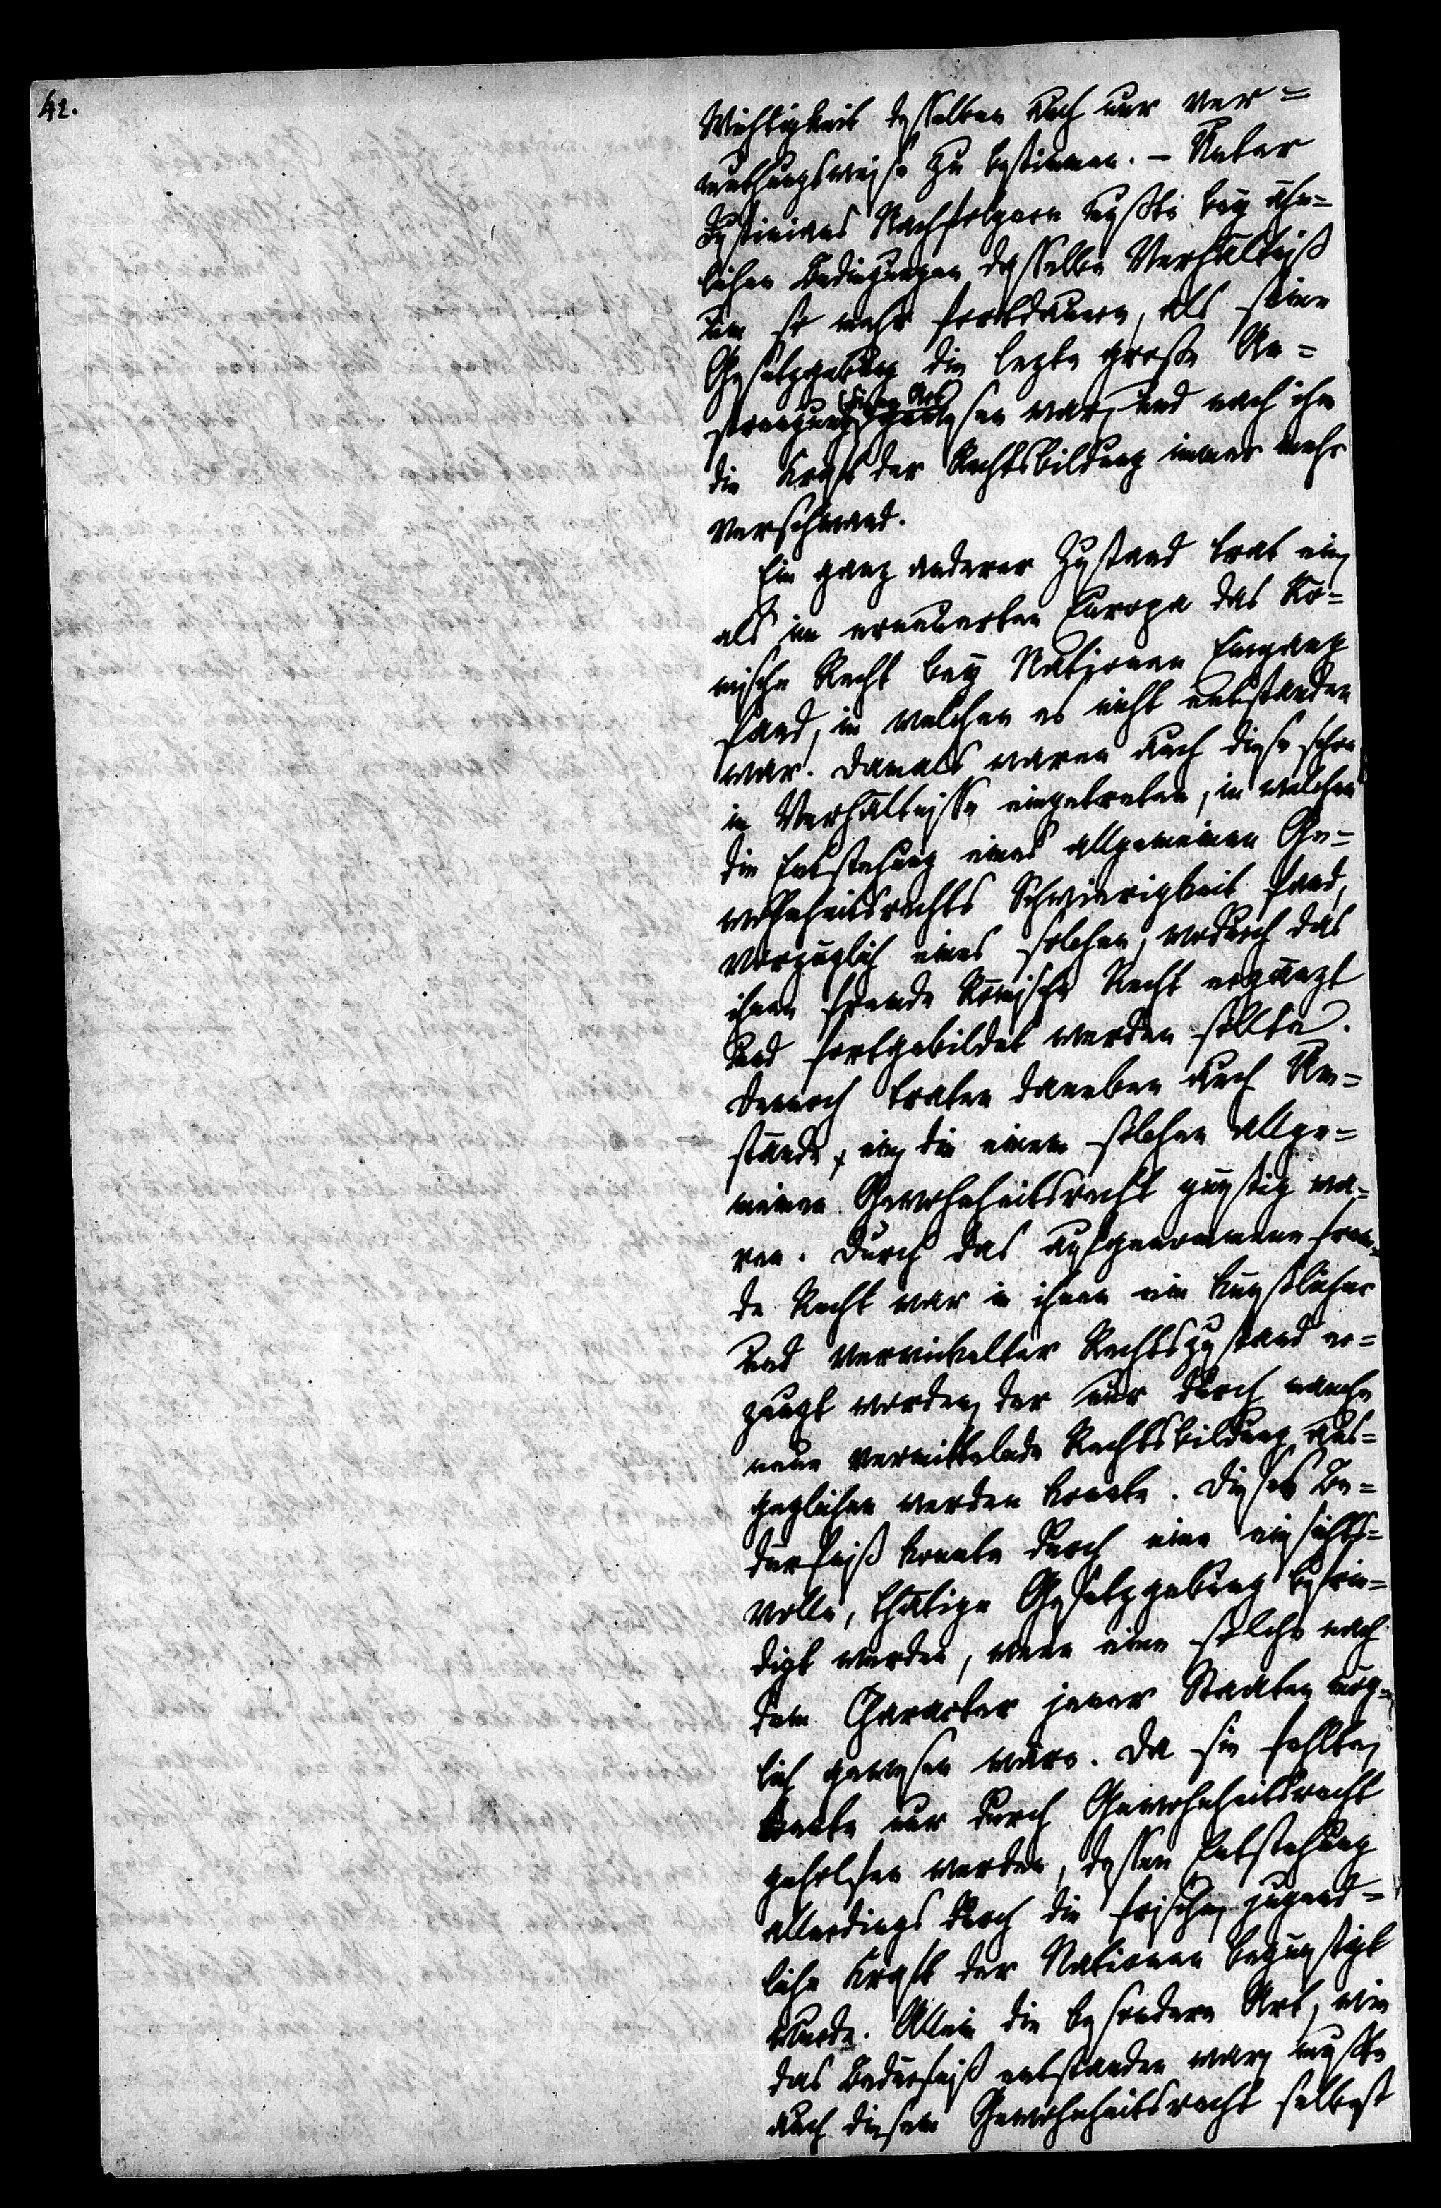 42.
Wichtigkeit desselben auch nur ver=
muthungsweise zu bestimmen. – Unter
Justinians Nachfolgern mußte bey ähn=
lichen Bedingungen dasselbe Verhältniß
um so mehr fortdauern, als seine
Gesetzgebung die letzte große An=
dieser Art
strengung gewesen war, und nach ihm
die Kraft der Rechtsbildung immer mehr
verschwand.
Ein ganz anderer Zustand trat ein,
als im erneuerten Europa das Rö=
mische Recht bey Nationen Eingang
fand, in welchen es nicht entstanden
war. Damals waren auch diese schon
in Verhältnisse eingetreten, in welchen
die Entstehung eines allgemeinen Ge=
wohnheitsrechts Schwierigkeit fand,
vorzüglich eines solchen, wodurch das
ihnen fremde Römische Recht ergänzt
und fortgebildet werden sollte.
Dennoch traten daneben auch Um=
stände ein, die einem solchen allge=
meinen Gewohnheitsrecht günstig wa=
ren. Durch das aufgenommene frem=
de Recht war in ihnen ein künstlicher
und verwickelter Rechtszustand er=
zeugt worden, der nur durch manche
neue vermittelnde Rechtsbildung aus=
geglichen werden konnte. Dieses Be=
dürfniß konnte durch eine einsichts=
volle, thätige Gesetzgebung befrie=
digt werden, wenn eine solche nach
dem Character jener Staaten mög=
lich gewesen wäre. Da sie fehlte,
konnte nur durch Gewohnheitsrecht
geholfen werden, dessen Entstehung
allerdings durch die frische, jugend=
liche Kraft der Nationen begünstigt
wurde. Allein die besondere Art, wie
das Bedürfniß entstanden war, mußte
auch diesem Gewohnheitsrecht selbst